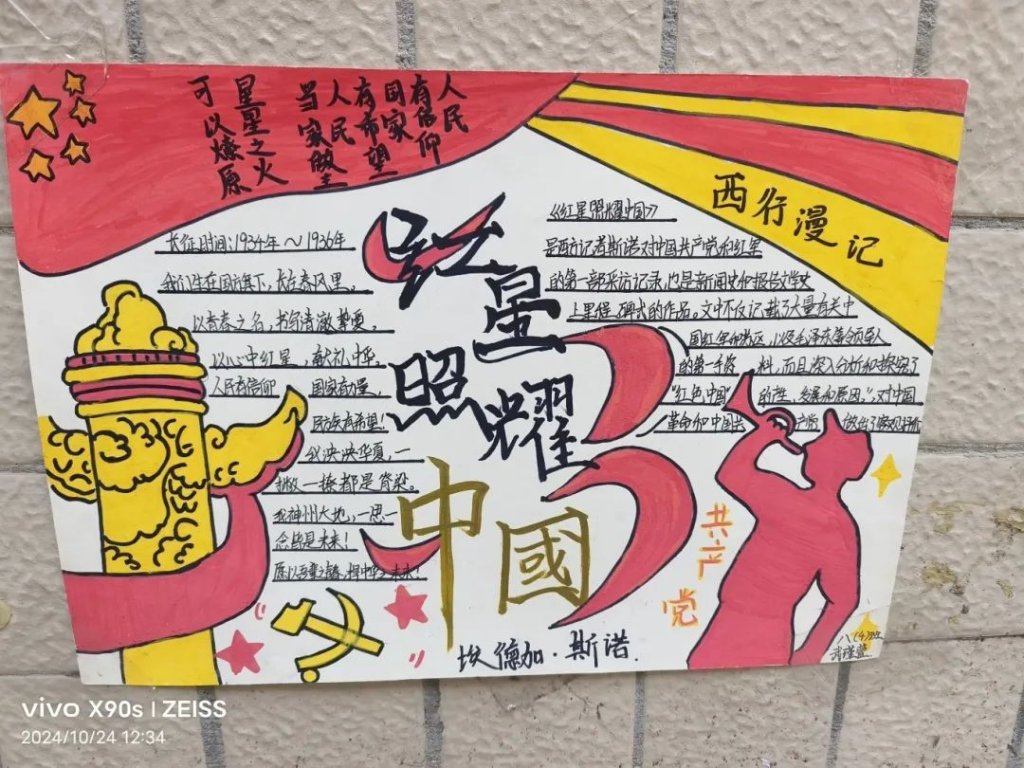 人民
有信仰
国家
有希望
人民
当家做主
星星之火
可以燎原
西行漫记
红星照耀中國
长征时间:1934年～1936年
我们生在国旗下,长在春风里。
以青春之名,书写清澈挚爱。
以心中红星,献礼中华。
人民有信仰
国家有力量
民族有希望!
我泱泱华夏,一
撇一捺都是脊梁。
我神州大地,一思一
念皆是未来!
愿以吾辈之青春,捍中华之未来!
《红星照耀中国》
是西方记者斯诺对中国共产党和红军
的第一部采访记录,也是新闻史和报告文学史
上里程碑式的作品。文中不仅记载了大量有关中
国红军和苏区,以及毛泽东等领导人
的第一手资料,而且深入分析和探究了
"红色中国"的产生、发展和原因,对中国
革命和中国共产党做出了客观评价
共产党
埃德加·斯诺
八(4)班
vivo X90s | ZEISS
2024/10/24 12:34